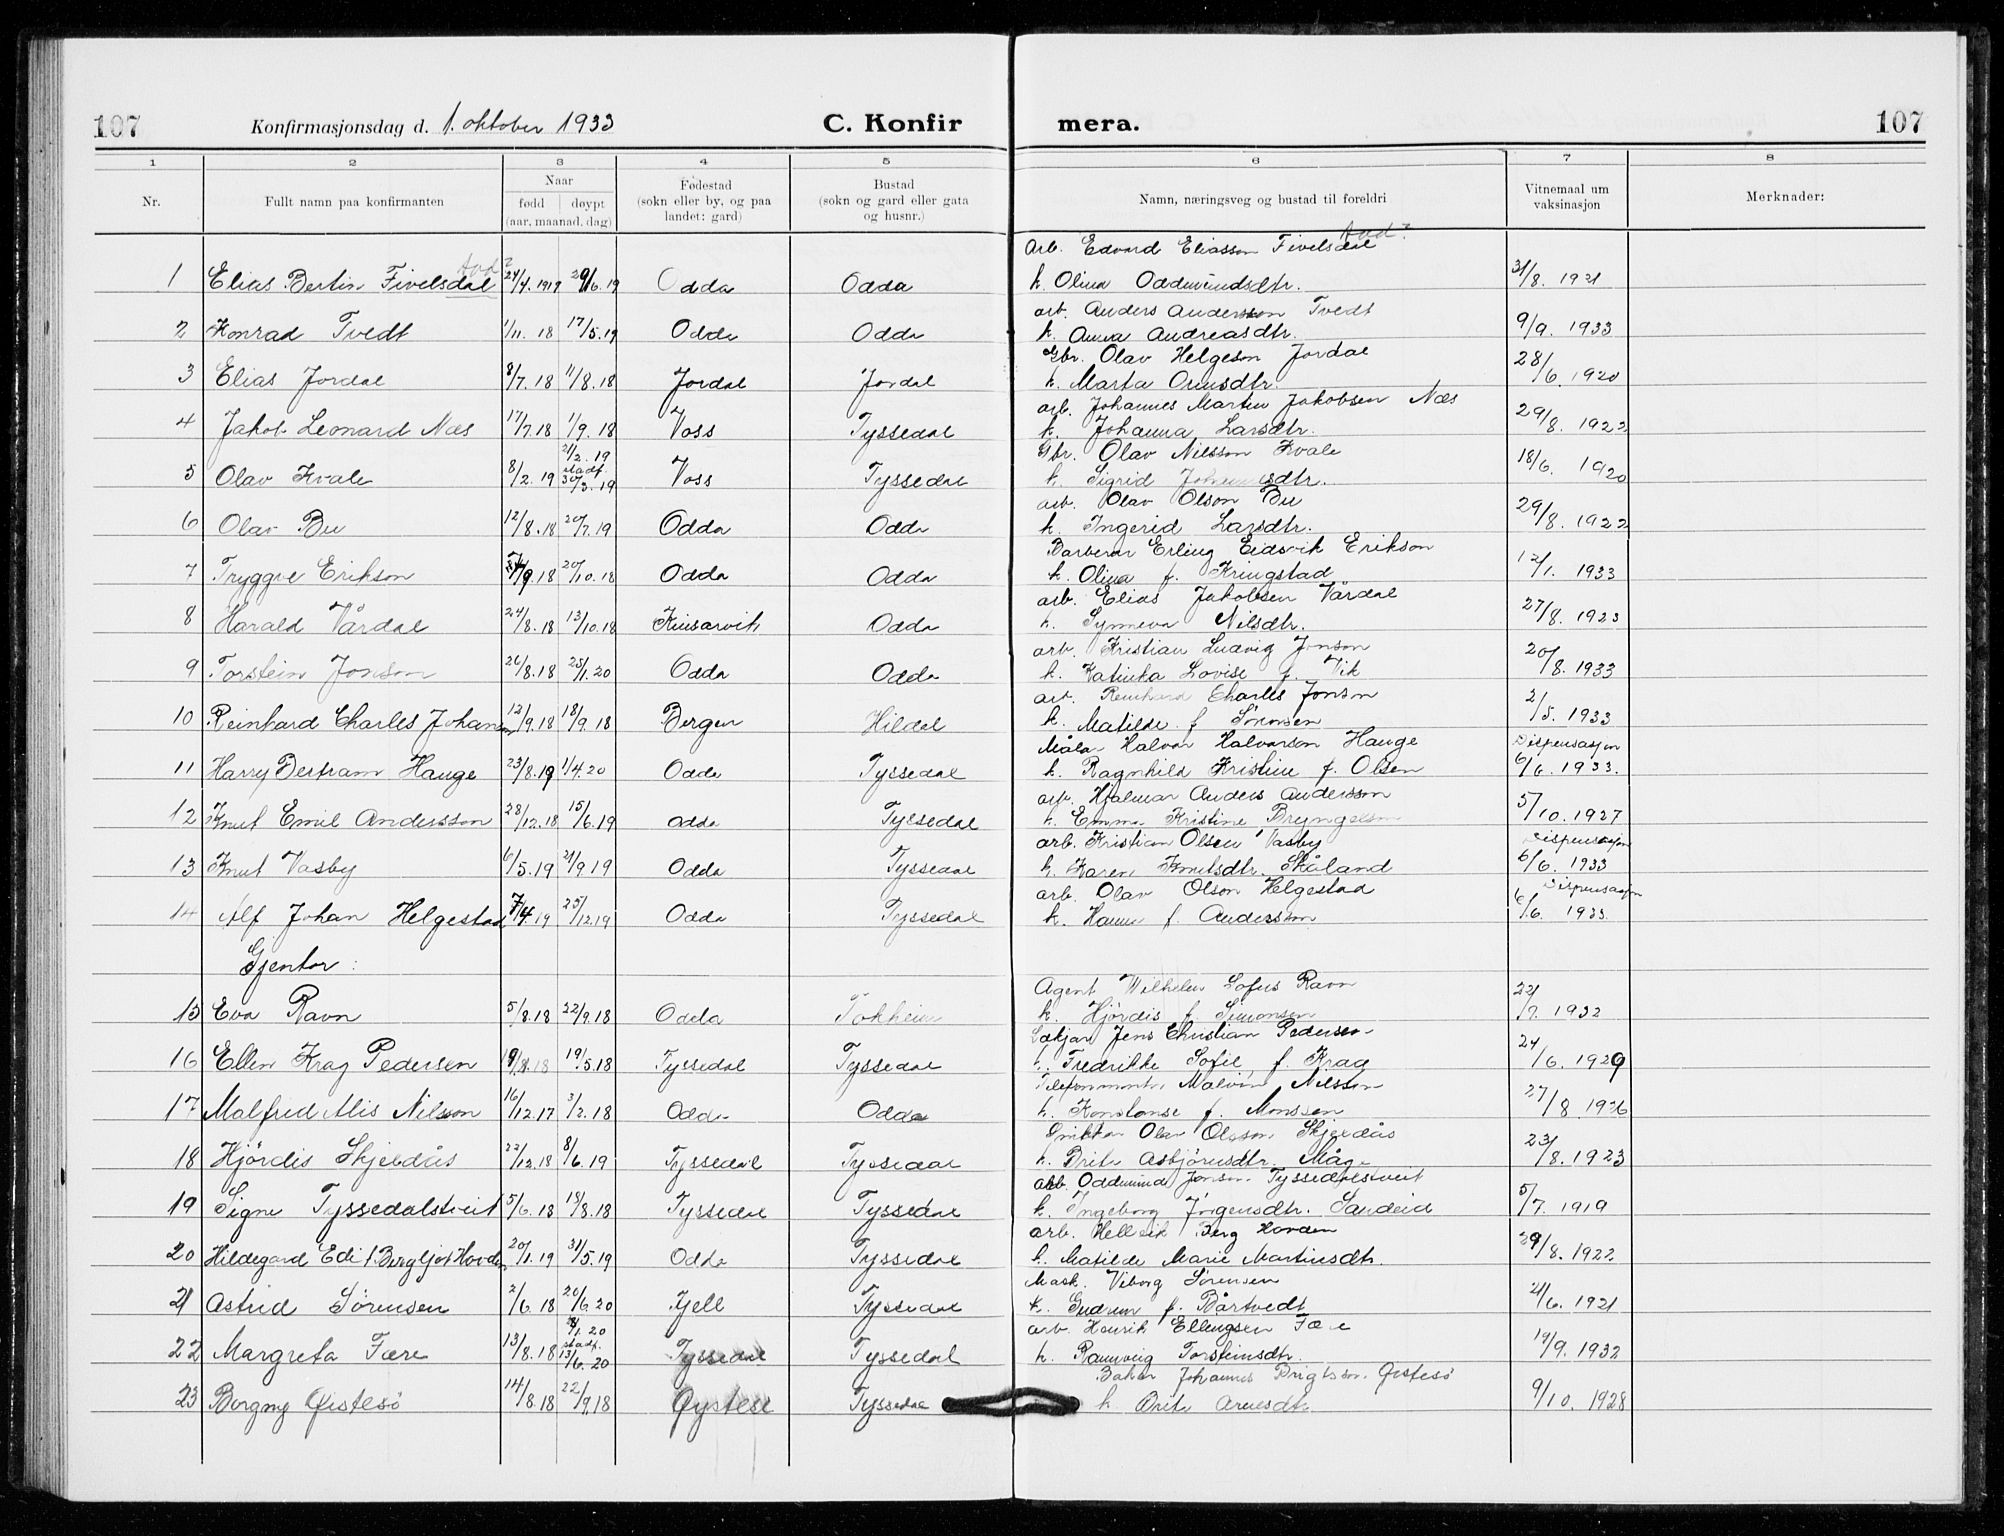 107 Konfirmasjonsdag d. 1. oktober 1933 C. Konfirmera. 107
1 2 3 4 5 6 7 8
Nr. Fullt namn paa konfirmanten Naar fødd døypt (aar, maanad, dag) Fødestad (sokn eller by, og paa landet: gard) Bustad (sokn og gard eller gata og husnr.) Namn, næringsveg og bustad til foreldri Vitnemaal um vaksinasjon Merknader:
aad? aad?
arb. Edvard Eliasson Fivelsdal
1 Elias Bertin Fivelsdal 24/4. 1919 29/6. 19 Odda Odda k. Olina Oddmundsdtr. 31/8. 1921
arb. Anders Andersson Tvedt
2 Konrad Tvedt 1/11. 18 17/5. 19 Odda Odda k. Anna Andreasdtr. 9/9. 1933
Gbr. Olav Helgeson Jordal
3 Elias Jordal 8/7. 18 11/8. 18 Jordal Jordal k. Marta Ormsdtr. 28/6. 1920
arb. Johannes Martin Jakobsen Næs
4 Jakob Leonard Næs 17/7. 18 1/9. 18 Voss Tyssedal k. Johanna Larsdtr. 29/8. 1922
Gbr. Olav Nilsson Kvale
5 Olav Kvale 8/2. 19 21/2. 19 stadf. 30/3. 19 Voss Tyssedal k. Sigrid Johannesdtr. 18/6. 1920
arb. Olav Olson Bu
6 Olav Bu 12/8. 18 20/7. 19 Odda Odda k. Ingerid Larsdtr. 29/8. 1922
Barberar Erling Eidsvik Erikson
7 Tryggve Erikson /9. 18 20/10. 18 Odda Odda k. Olina f. Kringstad 12/1. 1933
arb. Elias Jakobsen Vårdal
8 Harald Vårdal 24/8. 18 13/10. 18 Kinsarvik Odda k. Synneva Nilsdtr. 27/8. 1923
arb. Kristian Ludvig Jonson
9 Torstein Jonson 26/8. 18 25/1. 20 Odda Odda k. Katinka Lovise f. Vik 20/8. 1933
arb. Reinhard Charles Jonson
10 Reinhard Charles Johansen 12/9. 18 18/9. 18 Bergen Hildal k. Matilde f. Simonsen 2/5. 1933
Målar Halvar Halvarson Hauge Dispensasjon
11 Harry Bertram Hauge 23/8. 19 1/4. 20 Odda Tyssedal k. Ragnhild Kristine f. Olsen 6/6. 1933.
arb. Hjalmar Anders Andersson
12 Knut Emil Andersson 28/12. 18 15/6. 19 Odda Tyssedal k. Emma Kristine Bryngelson 5/10. 1927
arb. Kristian Olsen Vasby Dispensasjon
13 Knut Vasby 6/5. 19 21/9. 19 Odda Tyssedal k. Karen Knutsdtr. Skåland 6/6. 1933
arb. Olav Olson Helgestad Dispensasjon
14 Alf Johan Helgestad 7/4. 19 25/12. 19 Odda Tyssedal k. Hanna f. Andersson 6/6. 1933
Gjentor:
Agent Wilhelm Sofus Ravn
15 Eva Ravn 5/8. 18 22/9. 18 Odda Tokheim k. Hjördis f. Simonsen 22/7. 1932
Jens Christian Pedersen
16 Ellen Krag Pedersen 19/5. 18 Tyssedal Tyssedal k. Fredrikke Sofie f. Krag 24/6. 1929
Telefonmontør Malvin Nilsson
17 Malfred Alis Nilsson 16/12. 17 3/2. 18 Odda Odda k. Konstanse f. Monssen 27/8. 1926
Olav Olsson Skjeldås
18 Hjördis Skjeldås 22/12. 18 8/6. 19 Tyssedal Tyssedal k. Brita Asbjörnsdtr. Måge 23/8. 1923
arb. Oddmund Jonson Tyssedalstveit
19 Signe Tyssedalstveit 5/6. 18 18/8. 18 Tyssedal Tyssedal k. Ingeborg Jörgensdtr. Sandeid 5/7. 1919
arb. Hellvik Berg Hovden
20 Hildegard Edit Bergljot Hovden 20/1. 19 31/5. 19 Odda Tyssedal k. Matilde Marie Martinsdtr. 29/8. 1922
Mask. Viborg Sørensen
21 Astrid Sørensen 2/6. 18 20/6. 20 Fjell Tyssedal k. Gudrun f. Bårtvedt 21/6. 1921
arb. Henrik Ellingsen Fære
22 Margreta Fære 13/8. 18 /1. 20 stadf. 13/6. 20 Tyssedal Tyssedal k. Rannveig Torsteinsdtr. 19/9. 1932
Bakar Johannes Brigtsson Øistesö
23 Borgny Øistesö 14/8. 18 22/9. 18 Øystese Tyssedal k. Brita Arnesdtr. 9/10. 1928